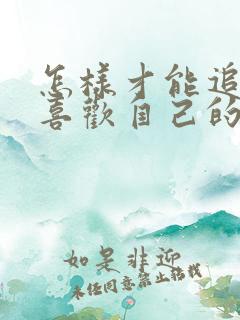 怎樣才能追
喜歡自己的
如是非迎
未任同意禁止轉載